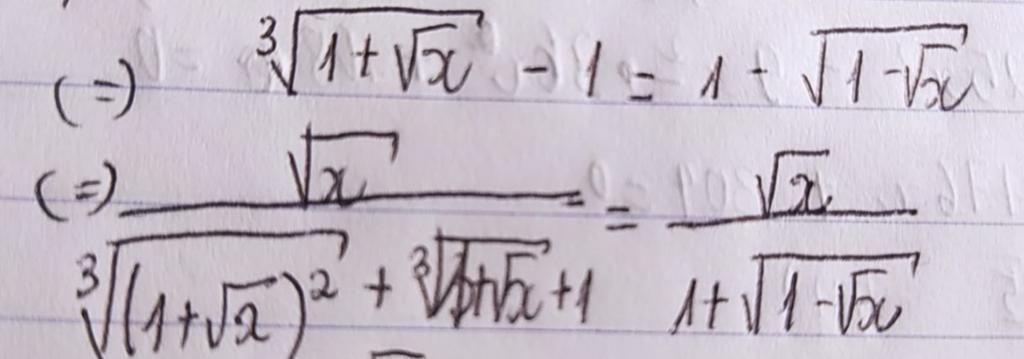 (=) ∛(1+√x) - 1 = 1 - √(1-√x)
(=) √x / (∛((1+√x)²) + ∛(1+√x) + 1) = √x / (1+√(1-√x))